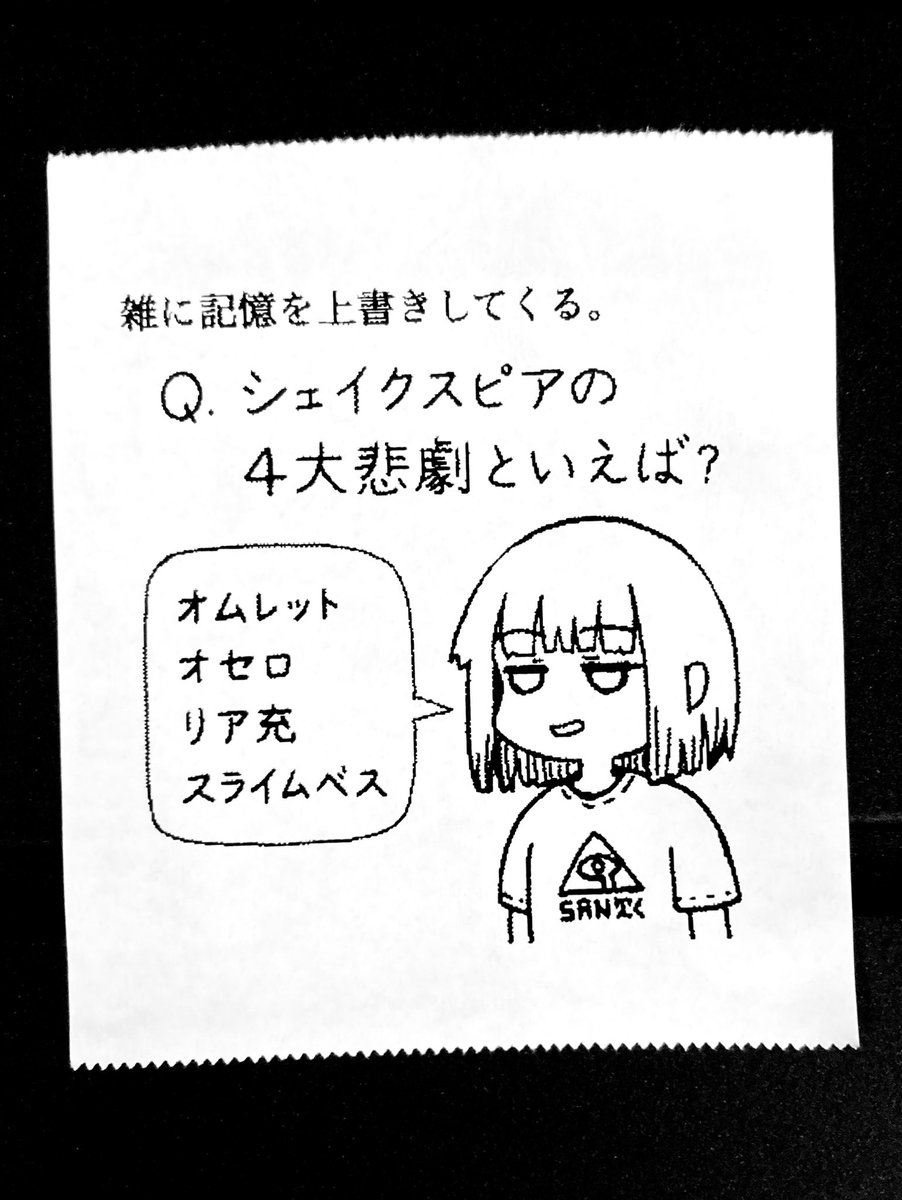 雑に記憶を上書きしてくる。
Q. シェイクスピアの
4大悲劇といえば?
オムレット
オセロ
リア充
スライムベス